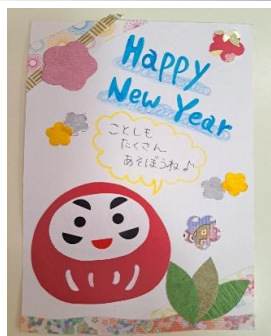 Happy
New Year
ことしも
たくさん
あそぼうね♪